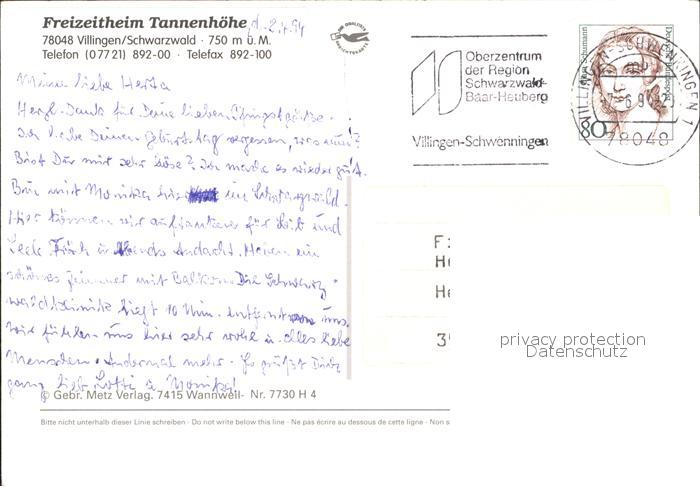 Freizeitheim Tannenhöhe
78048 Villingen/Schwarzwald · 750 m ü. M.
Telefon (07721) 892-00 · Telefax 892-100
d. 2.6.94
Meine liebe Herta
Herzl. Dank für Deine lieben Pfingstgrüße.
Ich habe Deinen Geburtstag vergessen, was nun?
Bist Du mir sehr böse? Ich mache es wieder gut.
Bin mit Monika hier im Schwarzwald.
Hier können wir auftanken für Leib und
Seele. Früh u. Abends Andacht. Haben ein
schönes Zimmer mit Balkon. Die Schwarz-
waldklinik liegt 10 Min. entfernt von uns.
Wir fühlen uns hier sehr wohl u. alles liebe
Menschen. Andermal mehr. Es grüßt Dich
ganz lieb Lotti u. Monika!
© Gebr. Metz Verlag. 7415 Wannweil- Nr. 7730 H 4
Bitte nicht unterhalb dieser Linie schreiben · Do not write below this line · Ne pas écrire au dessous de cette ligne · Non s
Oberzentrum
der Region
Schwarzwald-
Baar-Heuberg
Villingen-Schwenningen
Clara Schumann
Deutsche Bundespost
80
VILLINGEN-SCHWENNINGEN 1
mb
78048
F:
He
He
39
privacy protection
Datenschutz